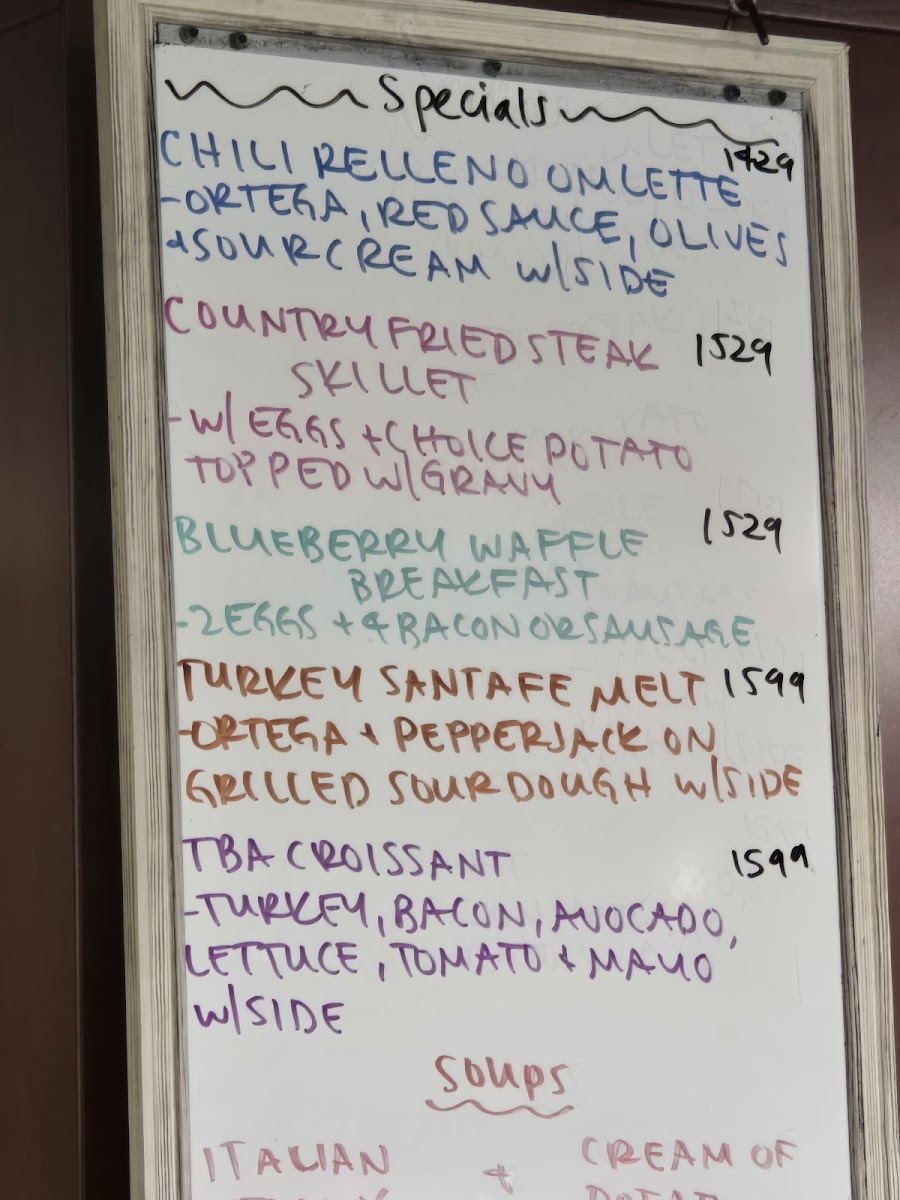 Specials
CHILI RELLENO OMLETTE 1429
-ORTEGA, RED SAUCE, OLIVES
+SOUR CREAM W/SIDE
COUNTRY FRIED STEAK 1529
SKILLET
-W/ EGGS + CHOICE POTATO
TOPPED W/GRAVY
BLUEBERRY WAFFLE 1529
BREAKFAST
-2 EGGS + 4 BACON OR SAUSAGE
TURKEY SANTA FE MELT 1599
-ORTEGA + PEPPERJACK ON
GRILLED SOURDOUGH W/SIDE
TBA CROISSANT 1599
-TURKEY, BACON, AVOCADO,
LETTUCE, TOMATO + MAYO
W/SIDE
Soups
ITALIAN + CREAM OF